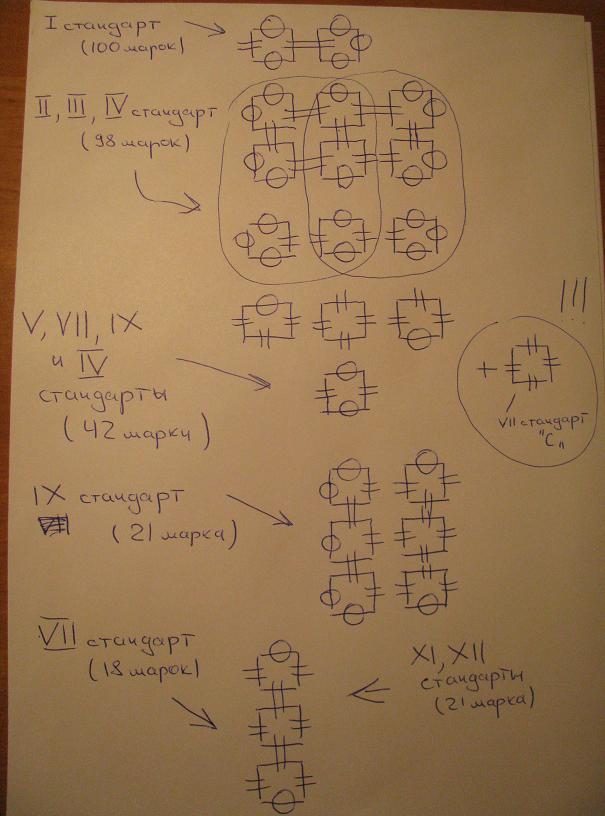 I стандарт
(100 марок)
II, III, IV стандарт
(98 марок)
V, VII, IX
и IV
стандарты
(42 марки)
!!!
+
VII стандарт
"С"
IX стандарт
(21 марка)
VII стандарт
(18 марок)
XI, XII
стандарты
(21 марка)